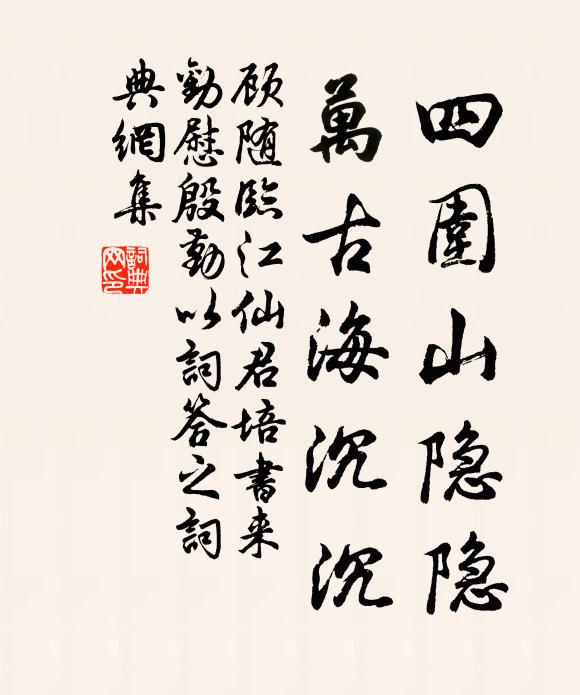 四圍山隐隐
萬古海沉沉
顾随臨江仙君培書来
勸慰殷勤以詞答之詞
典網集
詞典网印